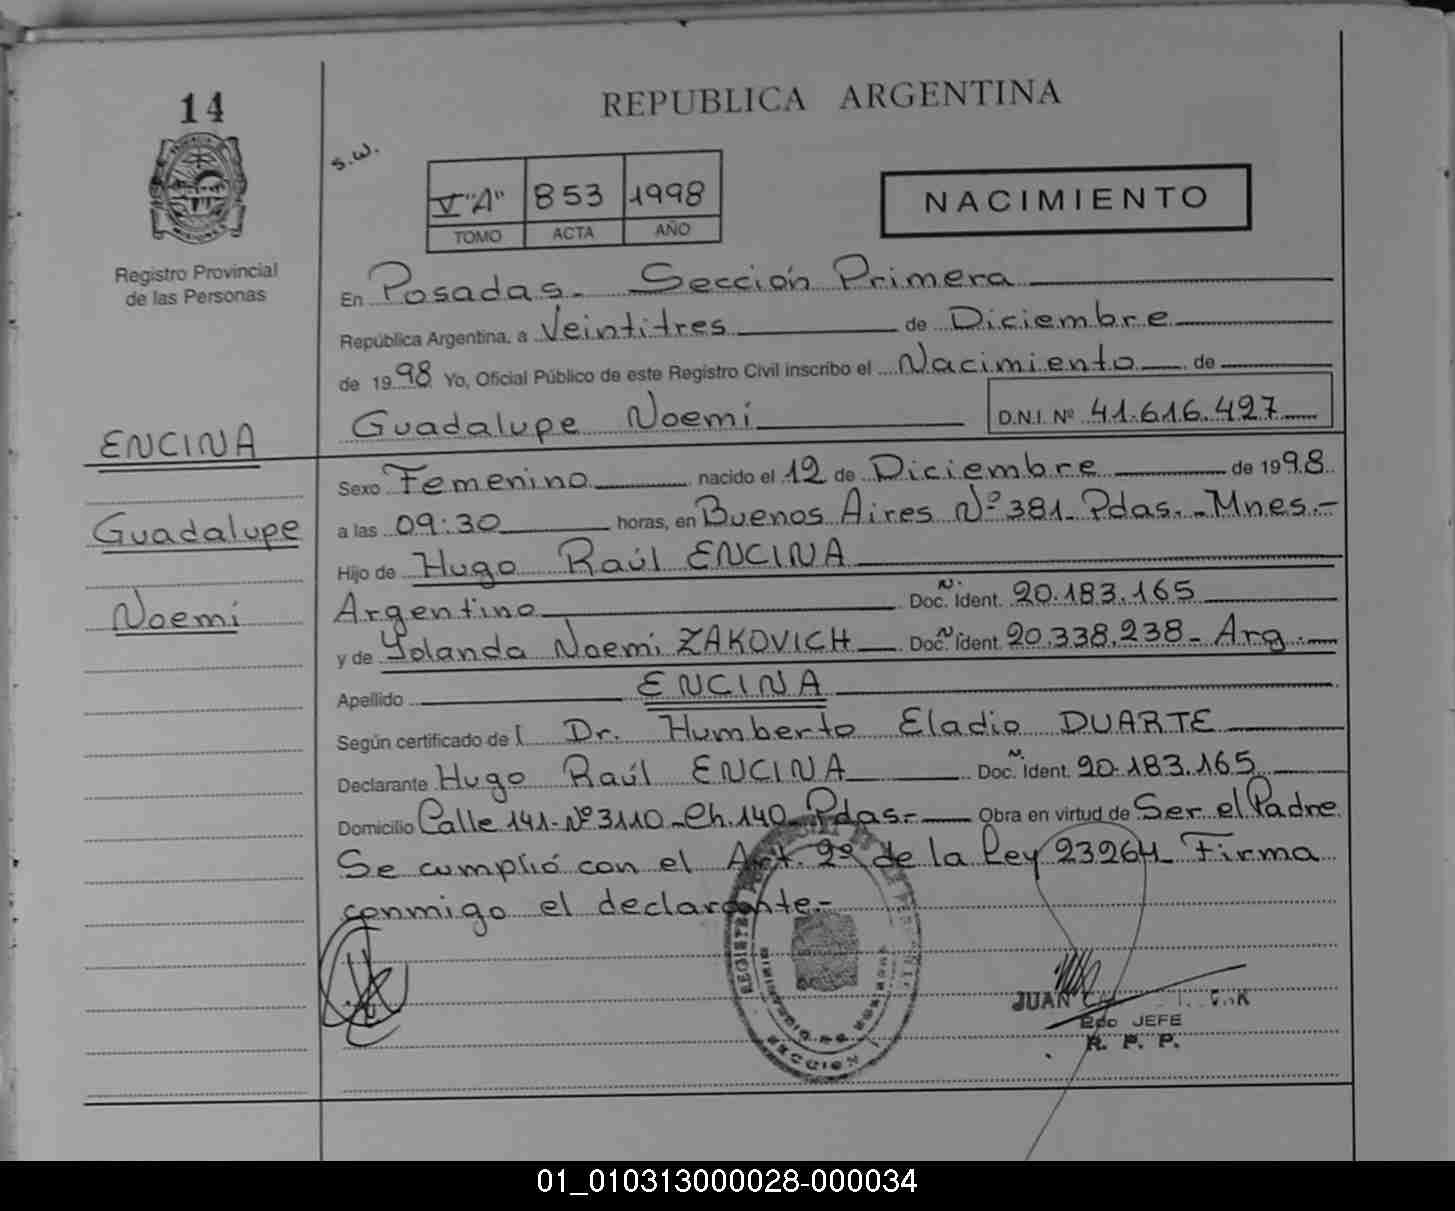 14
REPUBLICA ARGENTINA
s.w.
V "A" 853 1998
TOMO ACTA AÑO
NACIMIENTO
Registro Provincial
de las Personas
En Posadas - Sección Primera
República Argentina, a Veintitres de Diciembre
de 1998 Yo, Oficial Público de este Registro Civil inscribo el Nacimiento de
Guadalupe Noemí D.N.I. Nº 41.616.427
ENCINA
Guadalupe
Noemí
Sexo Femenino nacido el 12 de Diciembre de 1998
a las 09:30 horas, en Buenos Aires Nº 381 - Pdas. - Mnes.-
Hijo de Hugo Raúl ENCINA
Argentino Doc. N. Ident. 20.183.165
y de Yolanda Noemi ZAKOVICH Doc. N. Ident. 20.338.238 - Arg.
Apellido ENCINA
Según certificado del Dr. Humberto Eladio DUARTE
Declarante Hugo Raúl ENCINA Doc. N. Ident. 20.183.165
Domicilio Calle 141 - Nº 3110 - Ch. 140 - Pdas.- Obra en virtud de Ser el Padre
Se cumplió con el Art. 2º de la Ley 23264 - Firma
conmigo el declarante.-
REGISTRO
SECCION
JUAN
2do JEFE
R. P. P.
01_010313000028-000034